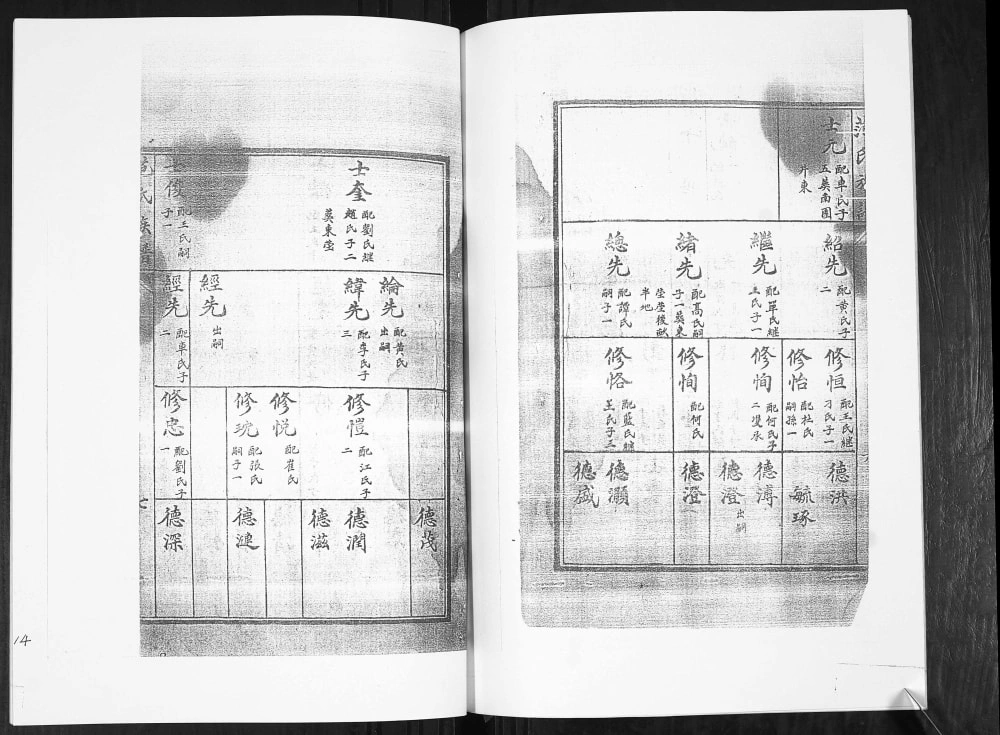 士元
配車氏子
五塟南園
外東
紹先
配黄氏子
二
繼先
配單氏繼
王氏子一
緒先
配高氏嗣
子一塟東
塋塋後獻
半地
總先
配譚氏
嗣子一
修恒
配王氏繼
刁氏子一
修怡
配杜氏
嗣孫一
修恂
配何氏子
二燮承
修恂
配何氏
修恪
配藍氏繼
王氏子二
德洪
毓琢
德溥
德澄
出嗣
德澄
德灝
德盛
士奎
配劉氏繼
趙氏子二
塟東塋
士俊
配王氏嗣
子一
綸先
配黃氏
出嗣
緯先
配李氏子
三
經先
出嗣
經先
配車氏子
二
修愷
配江氏子
二
修悦
配崔氏
修玧
配張氏
嗣子一
修忠
配劉氏子
一
德茂
德潤
德滋
德漣
德深
七
14